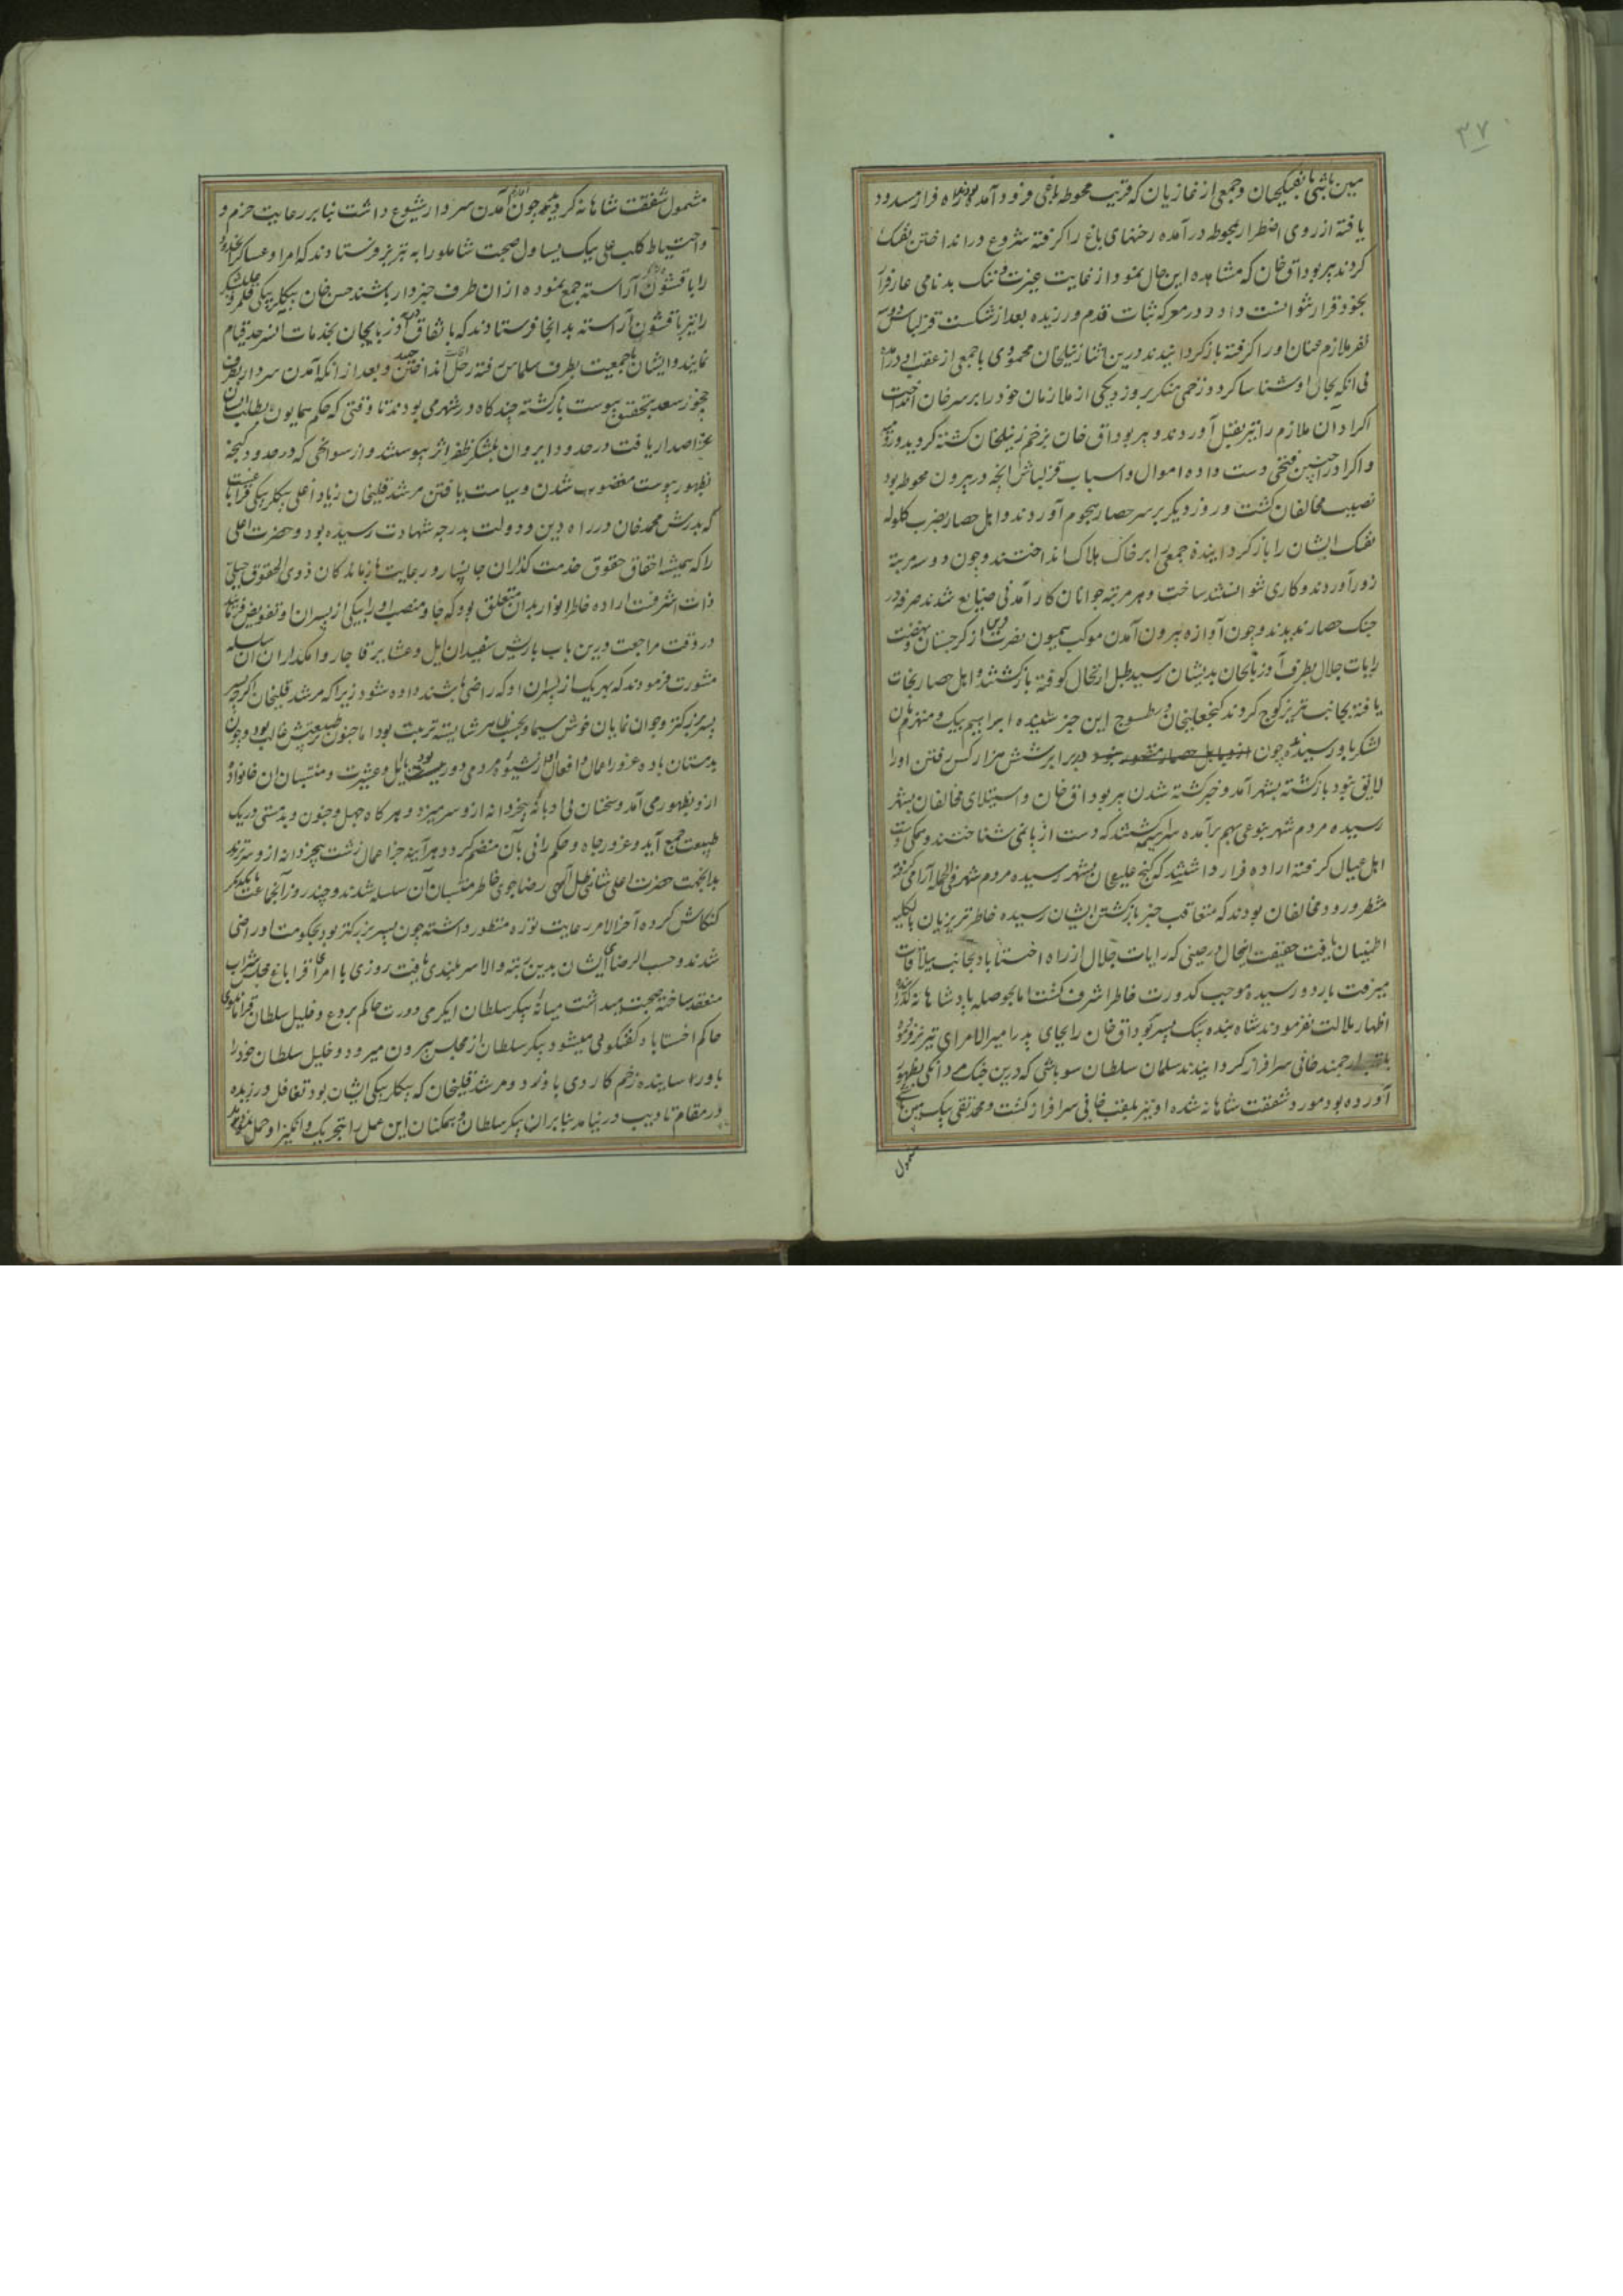 ۳۷
مین باشی با تفنکچیان و جمعی از غازیان که قریب محوطه باغی فرود آمده بودند راه فرار مسدود
یافته از روی اضطرار بمحوطه درآمده رخنهای باغ را کرفته شروع در انداختن تفنک
کردند پیر بوداق خان که مشاهده این حال نمود از غایت غیرت و ننک بدنامی عار فرار
بخود قرار نتوانست داد در معرکه ثبات قدم ورزیده بعد از شکست قزلباش دو سه
نفر ملازم عنان او را کرفته بازکردانیدند درین اثنا زنیلخان محمودی با جمعی از عقب او درآمده
بی انکه بحال او شناسا کردد زخمی منکر برو زد یکی از ملازمان خود را بر سر خان انداخت
اکراد آن ملازم را نیز بقتل آوردند و پیر بوداق خان بزخم زنیلخان کشته کردید و رومیه
و اکراد را چنین فتحی دست داده اموال و اسباب قزلباش آنچه در بیرون محوطه بود
نصیب مخالفان کشت و روز دیکر بر سر حصار هجوم آوردند و اهل حصار بضرب کلوله
تفنک ایشان را بازکردانیده جمعی را بر خاک هلاک انداختند و چون دو سه مرتبه
زور آوردند و کاری نتوانستند ساخت و هر مرتبه جوانان کارآمدنی ضایع شدند صرفه در
جنک حصار ندیدند و چون آوازه بیرون آمدن موکب همیون نصرت قرین از کرجستان و نهضت
رایات جلال بطرف آذربایجان بدیشان رسید طبل ارتحال کوفته بازکشتند و اهل حصار نجات
یافته بجانب تبریز کوچ کردند کنجعلیخان در طسوج این خبر شنیده ابراهیم بیک و منهزمان
لشکر باو رسیده چون در برابر شش هزار کس رفتن او را
لایق نبود بازکشته بشهر آمد و خبر کشته شدن پیر بوداق خان و استیلای مخالفان بشهر
رسیده مردم شهر بنوعی بهم برآمده سراسیمه کشتند که دست از پا نمی شناختند و همکی دست
اهل عیال کرفته اراده فرار داشتند که کنج علیخان بشهر رسیده مردم شهر فی الجمله آرامی کرفته
منتظر ورود مخالفان بودند که متعاقب خبر بازکشتن ایشان رسیده خاطر تبریزیان بالکلیه
اطمینان یافت حقیقت اینحال در حینی که رایات جلال از راه اخستاباد بجانب ییلاقات
میرفت باردو رسیده موجب کدورت خاطر اشرف کشت اما بحوصله پادشاهانه کذرانیده
اظهار ملالت نفرمودند شاه بنده بیک پسر بوداق خان را بجای پدر امیرالامرای تبریز فرموده
ارجمند خانی سرافراز کردانیدند سلمان سلطان سوباشی که درین جنک مردانکی بظهور
آورده بود مورد شفقت شاهانه شده او نیز بلقب خانی سرافراز کشت و محمد تقی بیک مین باشی
مشمول
مشمول شفقت شاهانه کردید چون آمدن سردار شیوع داشت بنابر رعایت حزم و
واحتیاط کلب علی بیک یساول صحبت شاملو را به تبریز فرستادند که امرا و عساکر
را با قشون آراسته جمع نموده از ان طرف خبردار باشند حسن خان بیکلربیکی قلمرو علیشکر
را نیز با قشون آراسته بدانجا فرستادند که باتفاق آذربایجان بخدمات انسرحد قیام
نمایند و ایشان باجمعیت بطرف سلماس رفته رحل اقامت انداختند و بعد از انکه آمدن سردار بطرف
چخور سعد بتحقیق پیوست بازکشته چند کاه در شهر می بودند تا وقتی که حکم همایون بطلب ایشان
عز اصدار یافت در حدود ایروان بلشکر ظفر اثر پیوستند و از سوانحی که در حدود کنجه
بظهور پیوست مغضوب شدن و سیاست یافتن مرشد قلیخان زیاد اغلی بیکلربیکی قراباغ است
که پدرش محمد خان در راه دین و دولت بدرجه شهادت رسیده بود و حضرت اعلی
را که همیشه احقاق حقوق خدمت کذاران جانسپار و رعایت بازماندکان ذوی الحقوق جبلی
ذات اشرفست اراده خاطر انوار بدان متعلق بود که جا و منصب او را بیکی از پسران او تفویض فرمایند
در وقت مراجعت درین باب باریش سفیدان ایل و عشایر قاجار و انمکداران ان سلسله
مشورت فرمودند که بهر یک از پسران او که راضی باشند داده شود زیرا که مرشد قلیخان اکرچه
پسر بزرکتر و جوان نمایان خوش سیما و بحسب ظاهر شایسته تربیت بود اما جنون بر طبیعتش غالب بود و چون
بدمستان باده غرور اعمال و افعال از شیوه مردمی دور بود نسبت بایل و عشیرت و منتسبان ان خانواده
ازو بظهور می آمد و سخنان بی ادبانه بیخردانه ازو سر میزد و هر کاه جهل و جنون و بدمستی در یک
طبیعت جمع آید و غرور جاه و حکمرانی بآن منضم کردد هر آینه جز اعمال زشت بیخردانه ازو سر نزند
بدانجهت حضرت اعلی شاهی ظل اللهی رضاجوی خاطر منتسبان آن سلسله شدند و چند روز آنجماعت با یکدیکر
کنکاش کرده آخر الامر رعایت توره منظور داشته چون پسر بزرکتر بود بحکومت او راضی
شدند و حسب الرضای ایشان بدین رتبه والا سربلندی یافت روزی با امرای قراباغ مجلس شراب
منعقد ساخته صحبت میداشت میانه بیکر سلطان ایکرمی دورت حاکم بردع و خلیل سلطان قرامانلوی
حاکم اخستاباد کفتکوئی میشود بیکر سلطان از مجلس بیرون میرود و خلیل سلطان خود را
باو رسانیده زخم کاردی باو زد و مرشد قلیخان که بیکلربیکی ایشان بود تغافل ورزیده
در مقام تادیب در نیامد بنابران بیکر سلطان و همکنان این عمل را بتحریک و انکیز او حمل نمودند